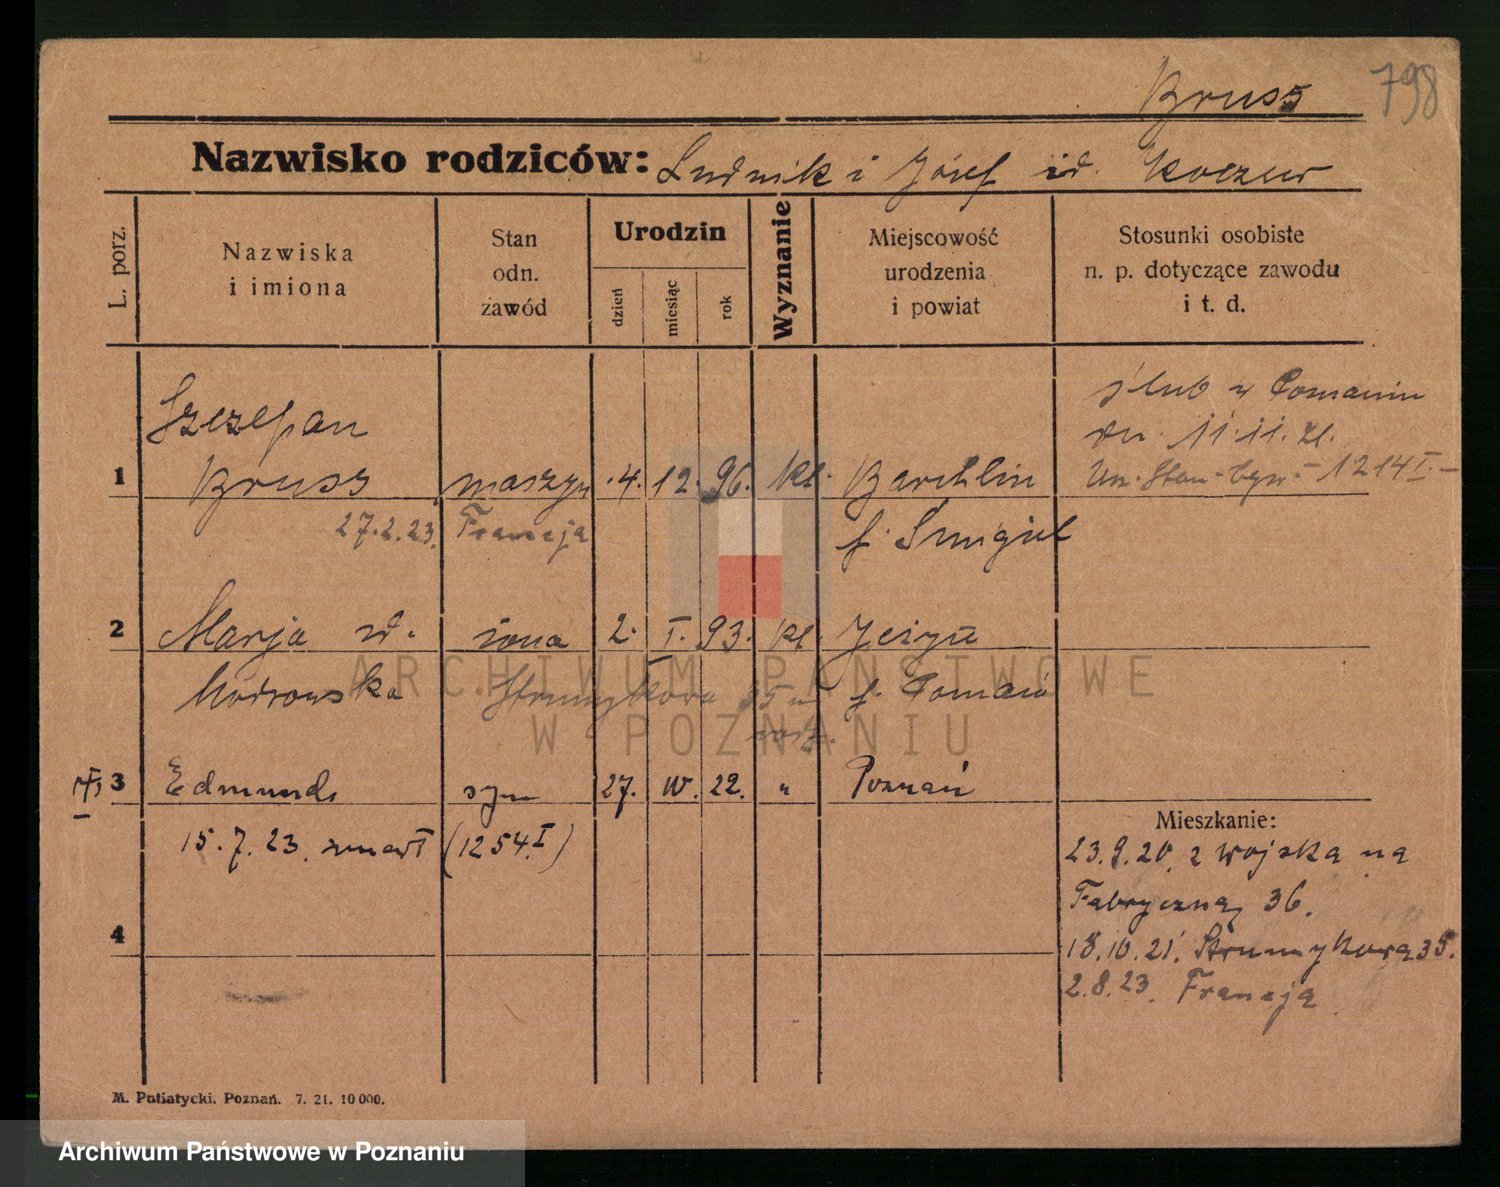 Bruss 798
Nazwisko rodziców: Ludwik i Józef id. Koczew
L. porz.
Nazwiska
i imiona
Stan
odn.
zawód
Urodzin
dzień
miesiąc
rok
Wyznanie
Miejscowość
urodzenia
i powiat
Stosunki osobiste
n. p. dotyczące zawodu
i t. d.
ślub w Poznaniu
dn. 11.11.21.
Urz. Stan. Cyw. 1214 I.
Szczepan
1 Bruss maszyn 4. 12. 96. kt. Barchlin
27.2.23. Francja p. Śmigiel
2 Marja żona 2. I. 93. kt. Jeżyce
Strumykowa 35 p. Poznań
3 Edmund syn 27. IV. 22. " Poznań
15.7.23. zmarł (1254 I)
4
Mieszkanie:
23.9.20. z wojska na
Fabryczną 36.
18.10.21. Strumykową 35.
2.8.23. Francja
M. Putiatycki, Poznań. 7. 21. 10 000.
ARCHIWUM PAŃSTWOWE
W POZNANIU
Archiwum Państwowe w Poznaniu